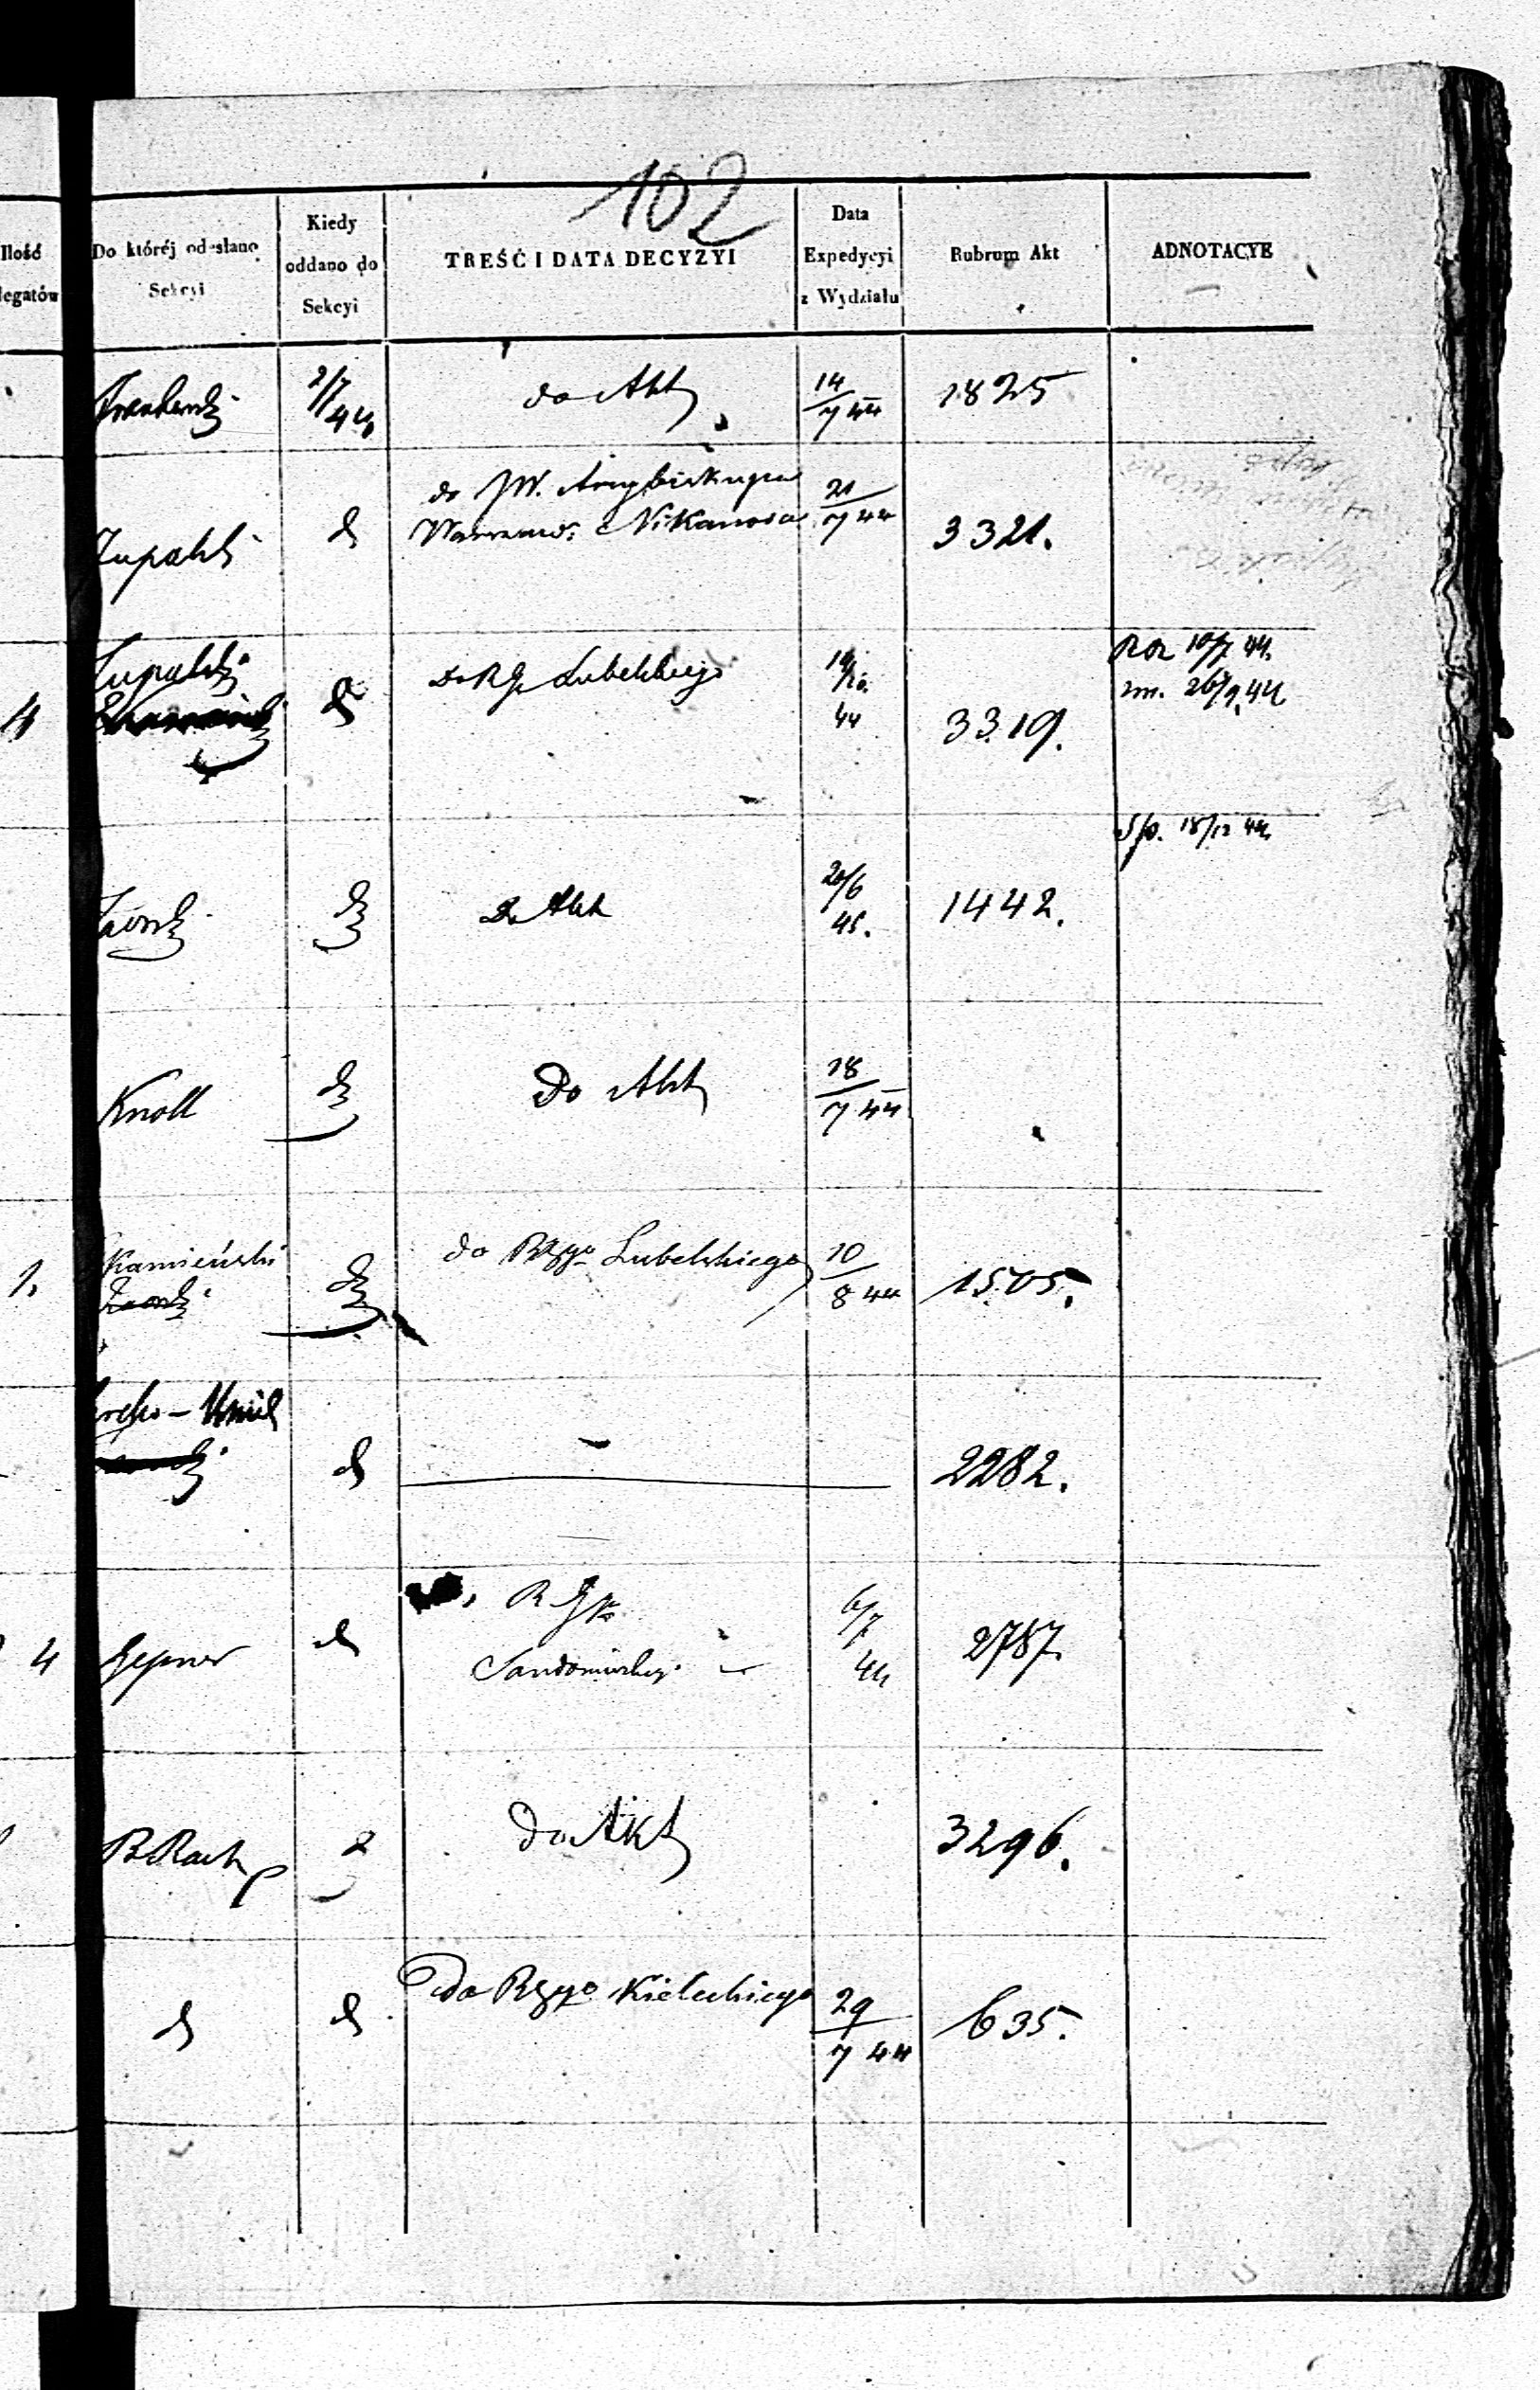 102
Ilość
legatów
Do któréj odesłano
Sekcyi
Kiedy
oddano do
Sekcyi
TREŚĆ I DATA DECYZYI
Data
Expedycyi
z Wydziału
Rubrum Akt
ADNOTACYE
2/7 44
do Akt
14/7 44
1825
Zupalski
do JW. Arcybiskupa
Warszaws: Nikanora
21/7 44
3321.
4
Zupalski
Do RGo Lubelskiego
44
3319.
zm. 26/9 44
Sp. 18/12 44
Do Akt
20/6
45.
1442.
Knoll
Do Akt
18/7 44
1.
Kamieński
do Rzgo Lubelskiego
10/8 44
1505.
2282.
4
Gepner
R Go
Sandomirskiego
6/7
44
2787
Do Akt
3296.
do Rzgo Kieleckiego
29/7 44
635.